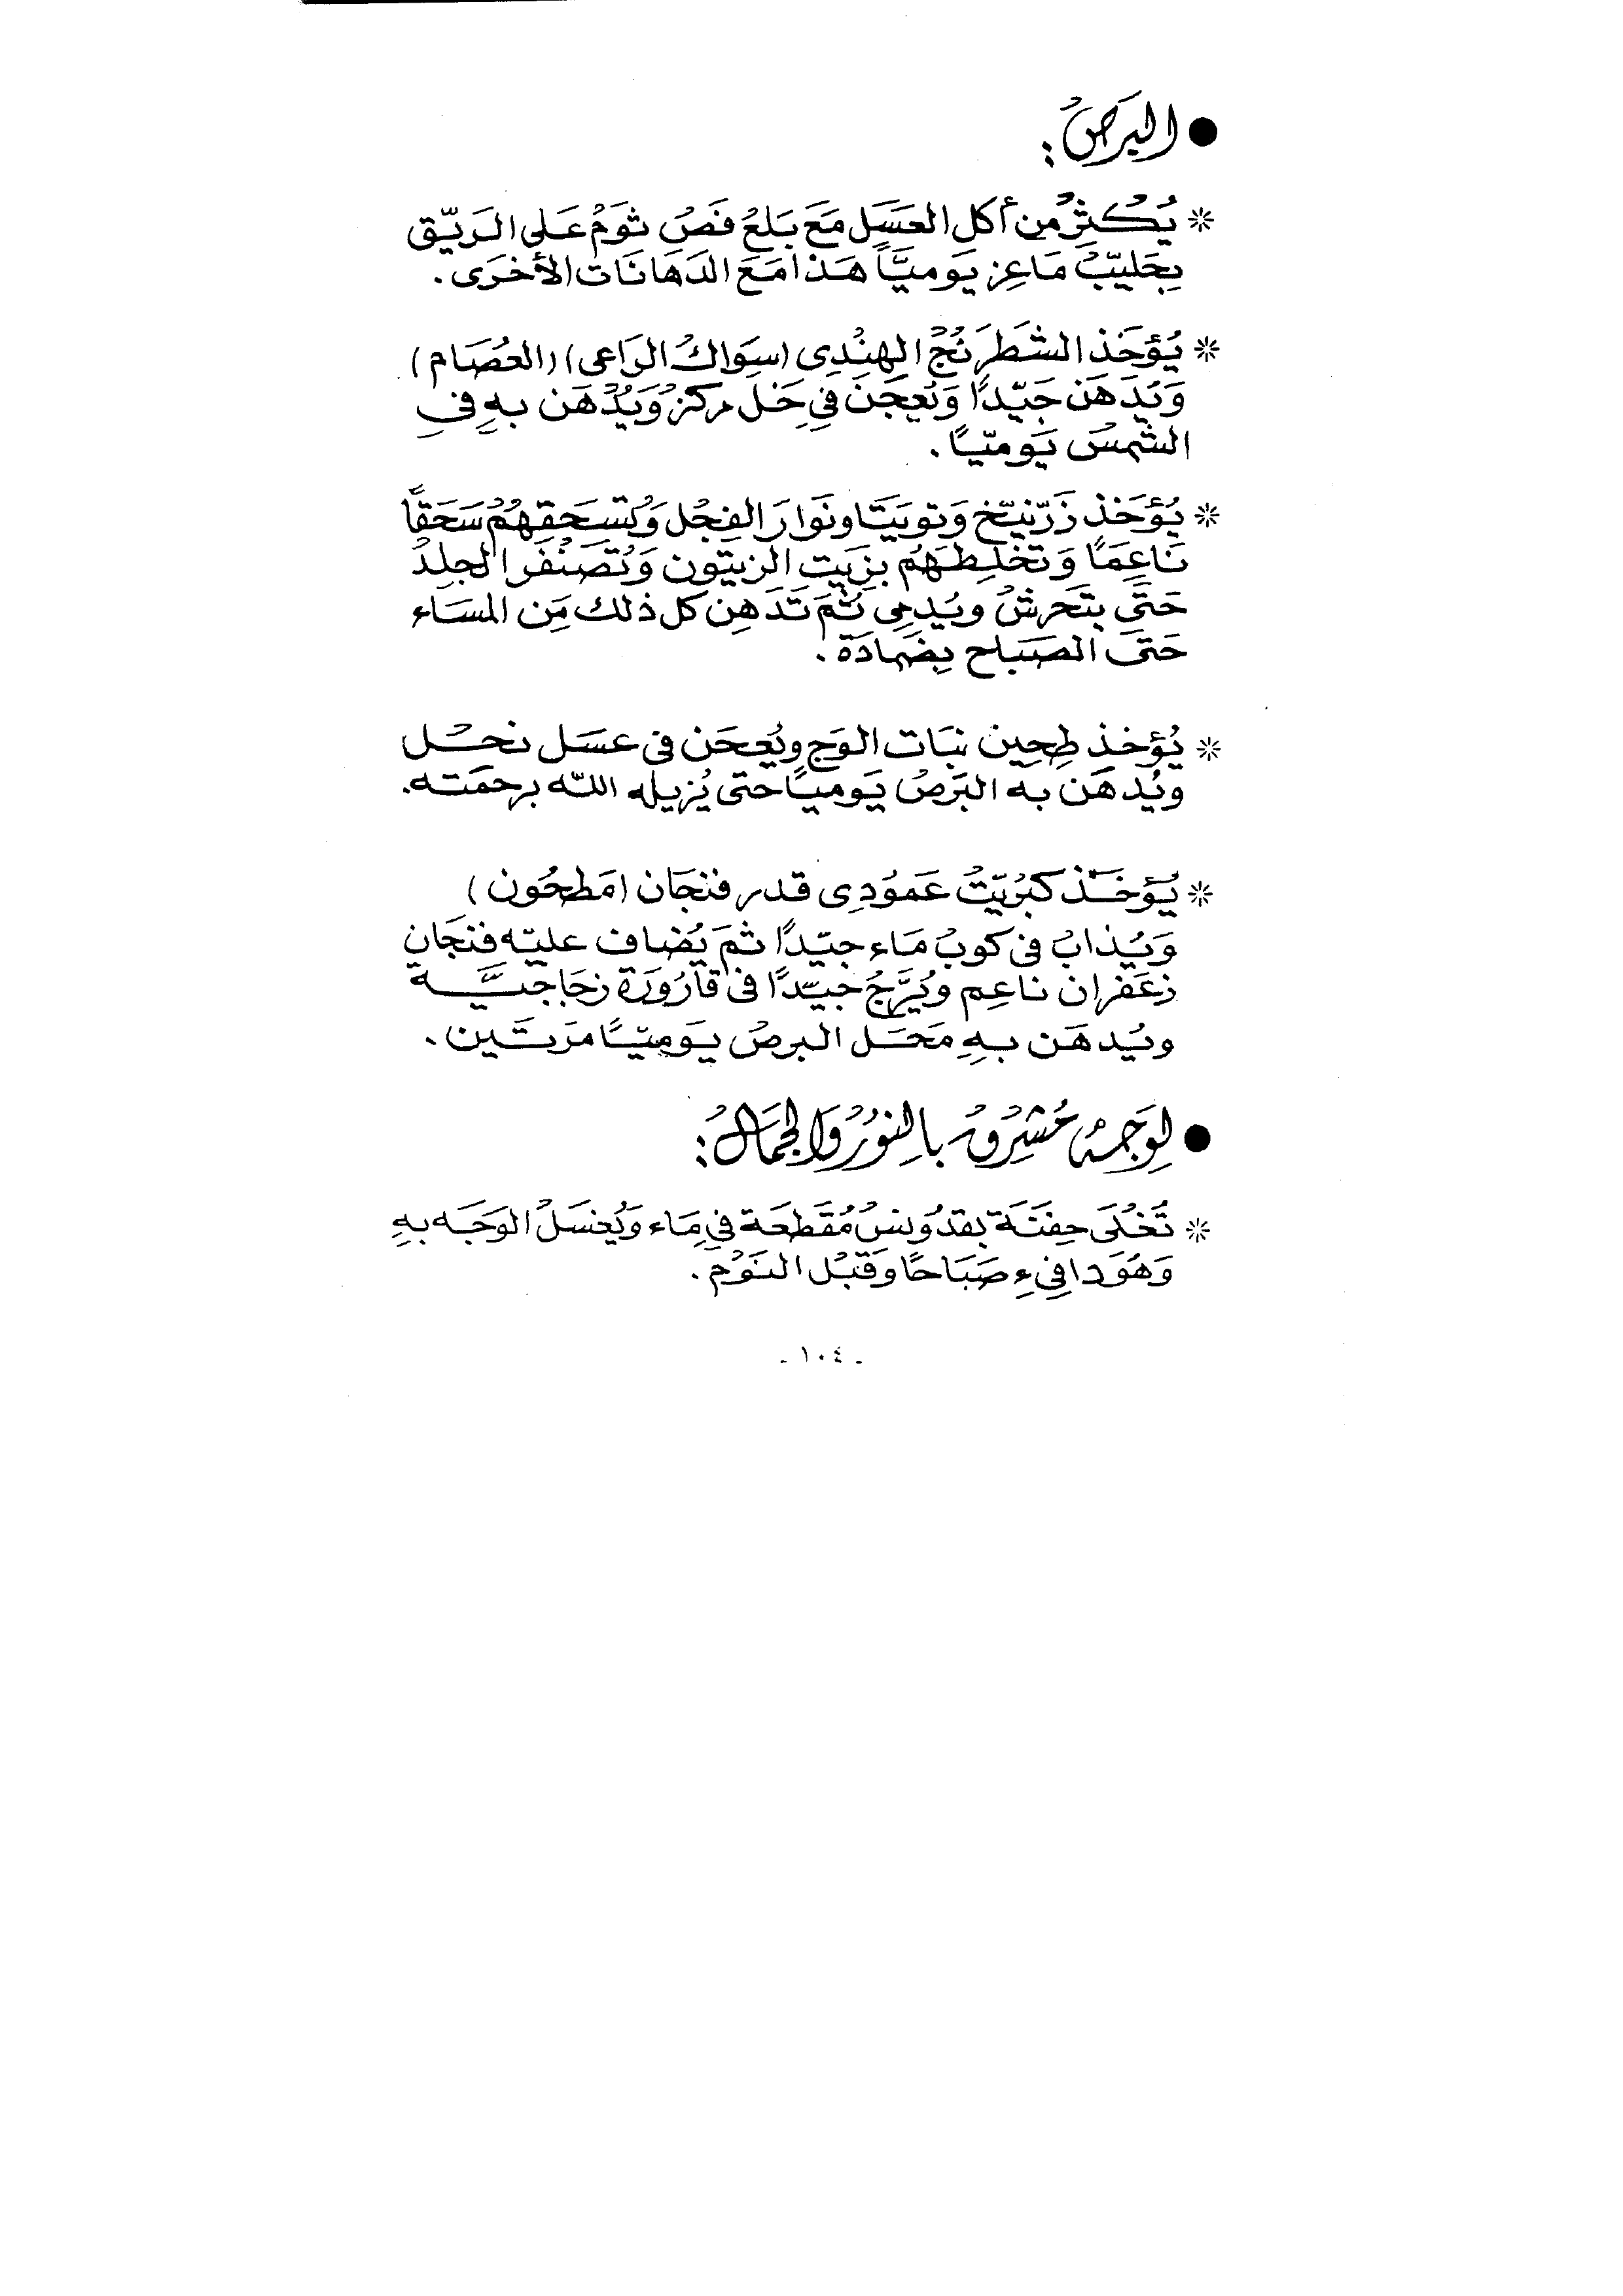 ● البرص :
* يُكثر من أكل العسل مع بلع فص ثوم على الريق
بحليب ماعز يوميًا هذا مع الدهانات الأخرى .
* يُؤخذ الشطرنج الهندى (سواك الراعى) (العصام)
ويدهن جيّدًا ويعجن في خل مركز ويُدهن به في
الشمس يوميّاً .
* يُؤخذ زرنيخ وتوبيتا ونوار الفجل وتسحقهم سحقًا
ناعمًا وتخلطهم بزيت الزيتون وتصنفر الجلد
حتى يتحرش ويدمى ثم تدهن كل ذلك من المساء
حتى الصباح بضمادة .
* يُؤخذ طحين نبات الوج ويُعجن فى عسل نحل
ويُدهن به البرص يوميًا حتى يُزيله الله برحمته .
* يؤخذ كبريت عمودى قدر فنجان (مطحون)
ويُذاب فى كوب ماء جيّدًا ثم يُضاف عليه فنجان
زعفران ناعم ويُرَّج جيّدًا فى قارورة زجاجيَّة
ويُدهن به محل البرص يوميًّا مرتين .
● لوجه مُشرق بالنور والجمال :
* تُغلى حفنة بقدونس مُقطعة في ماء ويُغسل الوجه به
وهو دافىء صباحًا وقبل النوم .
- ١٠٤ -